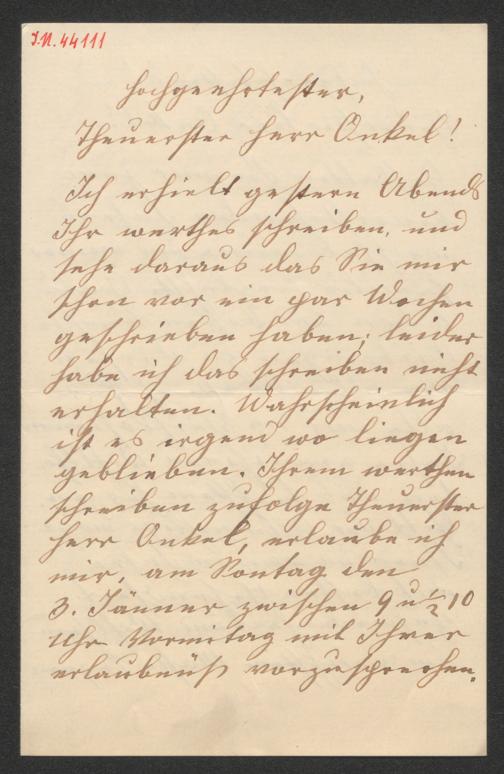 I.N. 44111
hochgeehrtester,
Theuerster Herr Onkel!
Ich erhielt gestern Abends
Ihr werthes schreiben, und
sehe daraus das Sie mir
schon vor ein par Wochen
geschrieben haben; leider
habe ich das schreiben nicht
erhalten. Wahrscheinlich
ist es irgend wo liegen
geblieben. Ihrem werthen
schreiben zufolge Theuerster
Herr Onkel, erlaube ich
mir, am Sontag den
3. Jänner zwischen 9 u ½ 10
Uhr Vormitag mit Ihrer
erlaubnüß vorzusprechen.